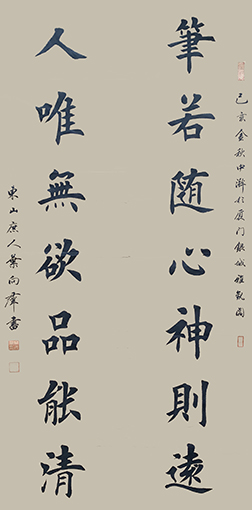 己亥金秋中澣於厦门銀城雅觀園
筆若随心神則遠
人唯無欲品能清
東山庶人葉向群書